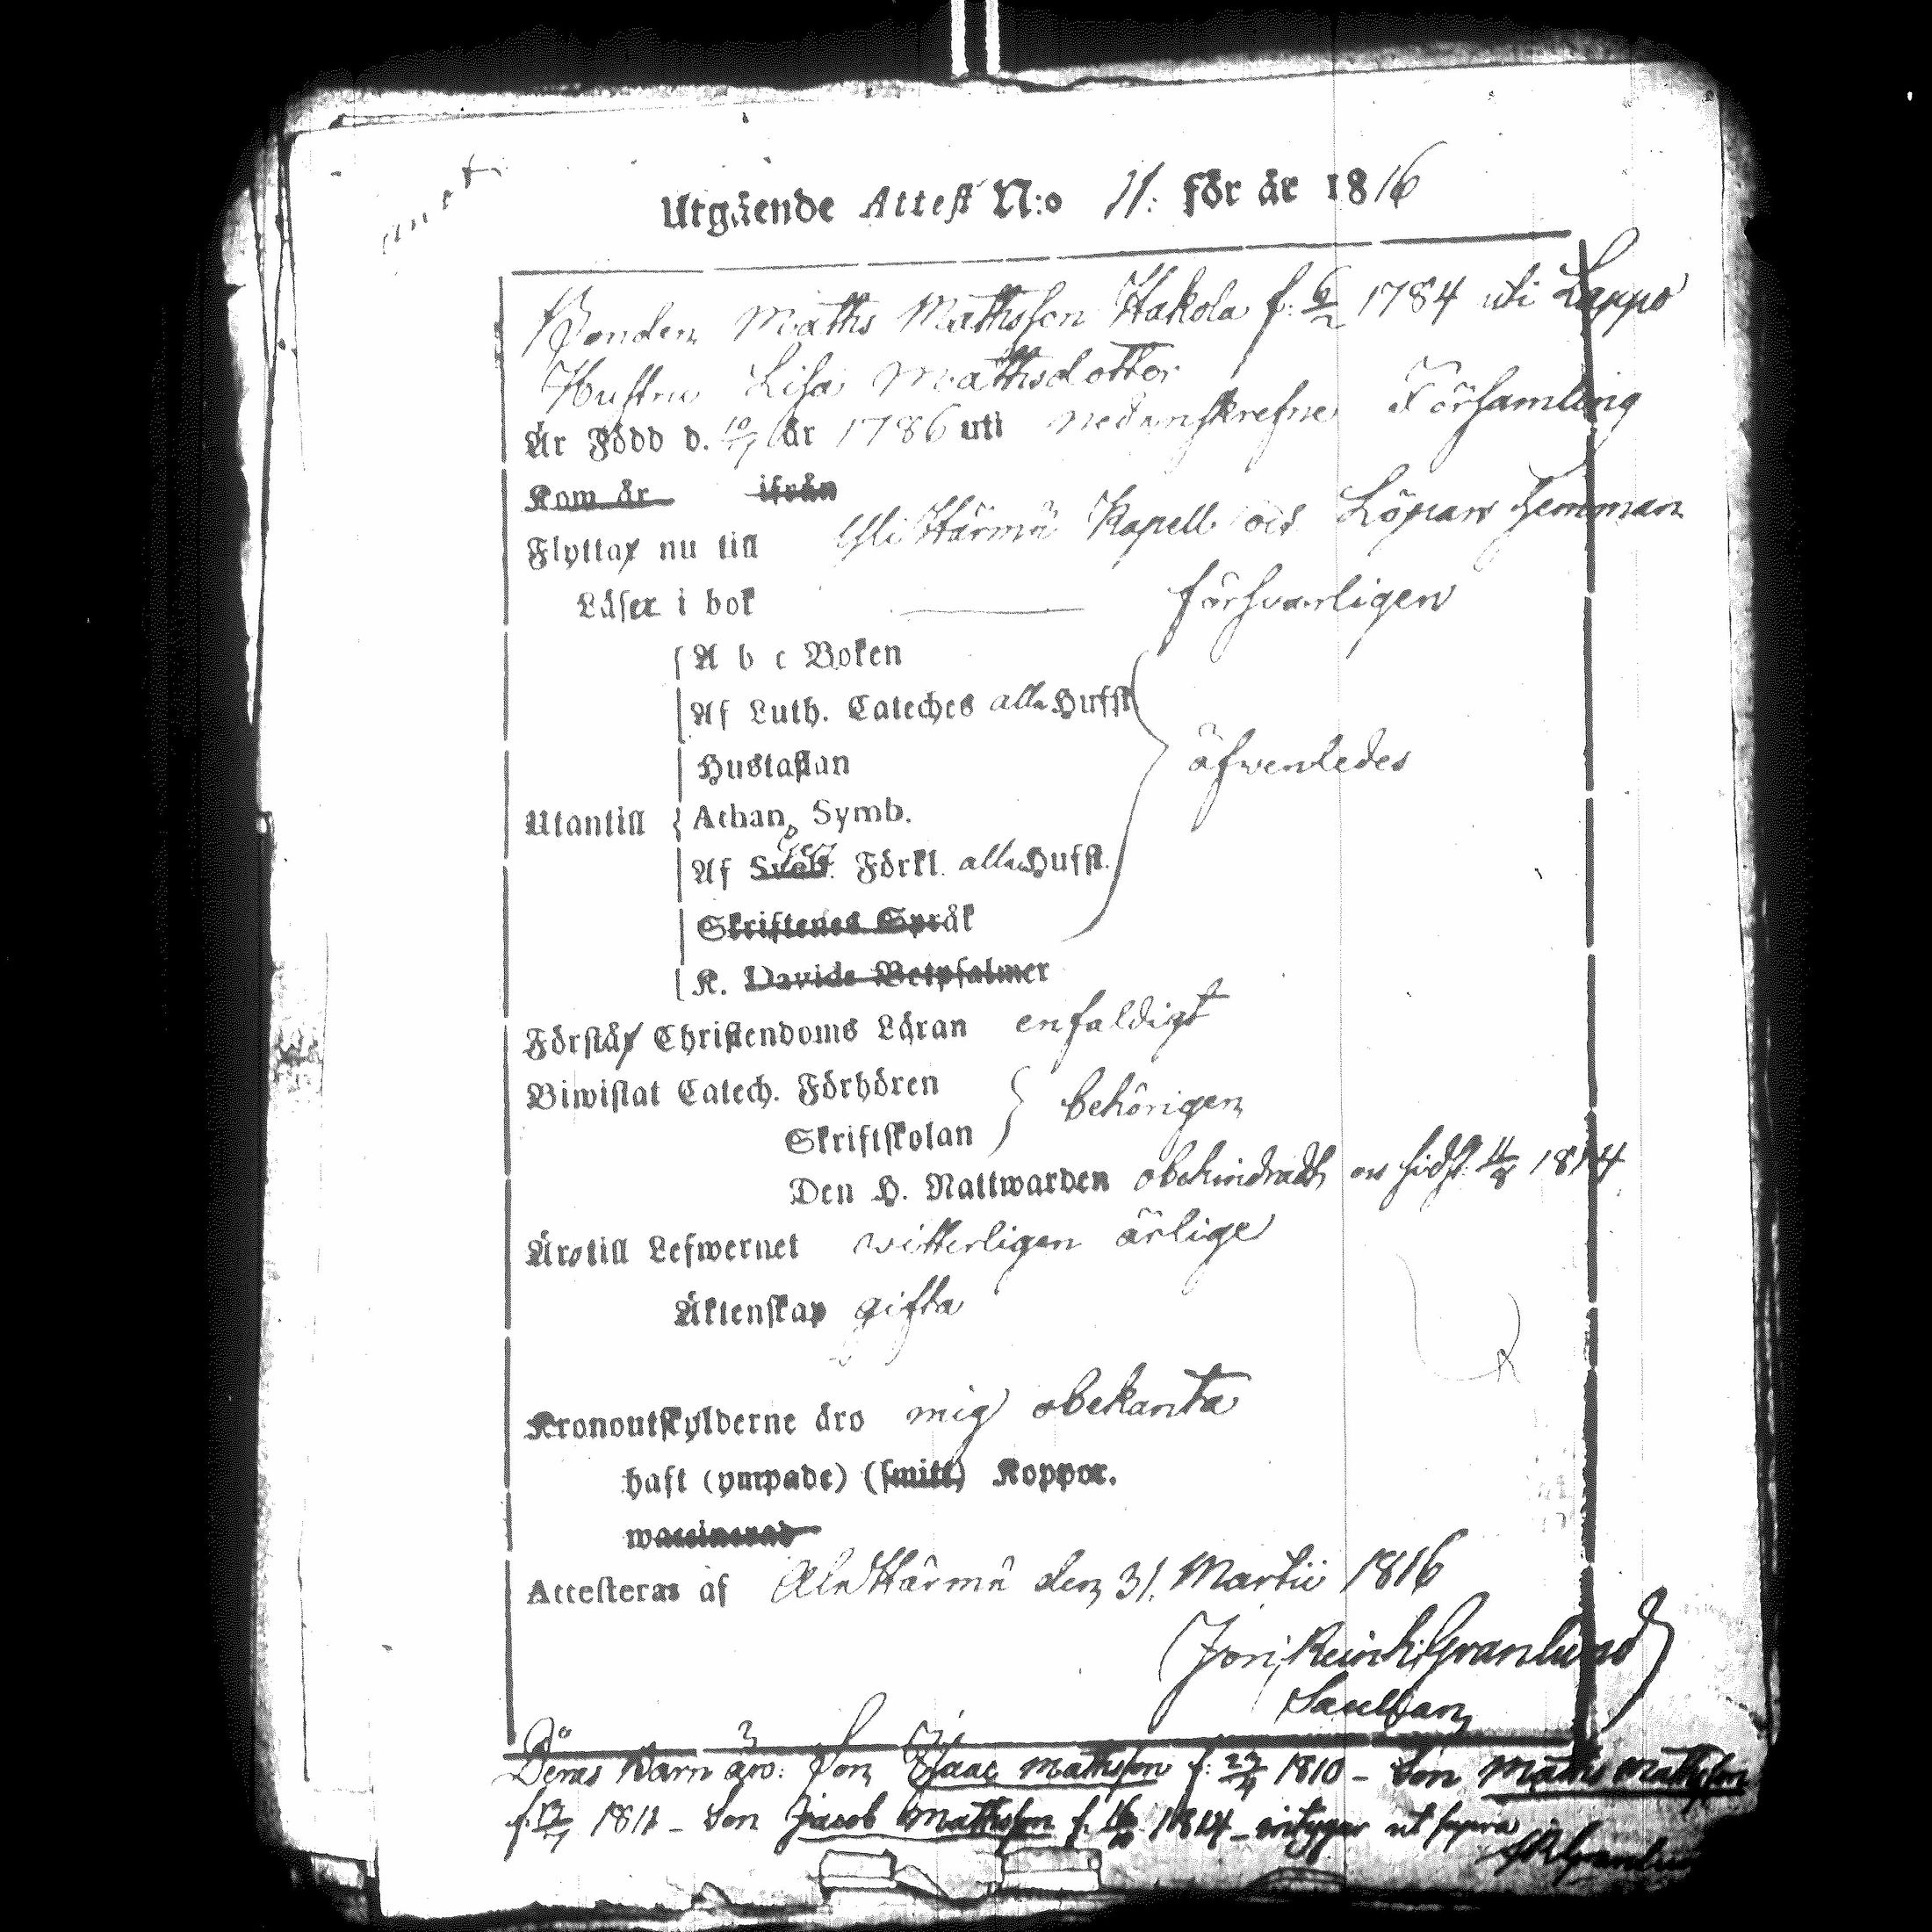 Utgående Attest N:o 11: för år 1816
Bonden Maths Mathsson Hakola f: 6/2 1784 uti Lappo
Hustru Lisa Mathsdotter
Är Född d. 10/7 år 1786 uti nedanskrefne Församling
Kom år ifrån
Flyttar nu till Ylihärmä Kapell och Löpars hemman
Läser i bok — försvarligen
A b c Boken
Af Luth. Cateches alla Hufst.
Hustaflan
äfwenledes
Utantill
Athan. Symb.
Af Sveb. Förkl. alla Hufst.
Skriftenes Språk
K. Davids Botpsalmer
Förstår Christendoms Läran enfaldigt
Biwistat Catech. Förhören
behörigen
Skriftskolan
Den H. Nattwarden obehindradt, sidst 1814
Äro till Lefwernet witterligen ärlige
Äktenskap gifta
Kronoutskylderne äro mig obekanta
haft (ympade) (smitt) Koppor.
waccinerad
Attesteras af AlaHärmä den 31. Martii 1816
Granlund
Deras Barn äro: Son Isaac Mathsson f: 1810 – Son Maths Mathsson
f. 1811 – Son Jacob Mathsson f. 1814 – intygar ut supra